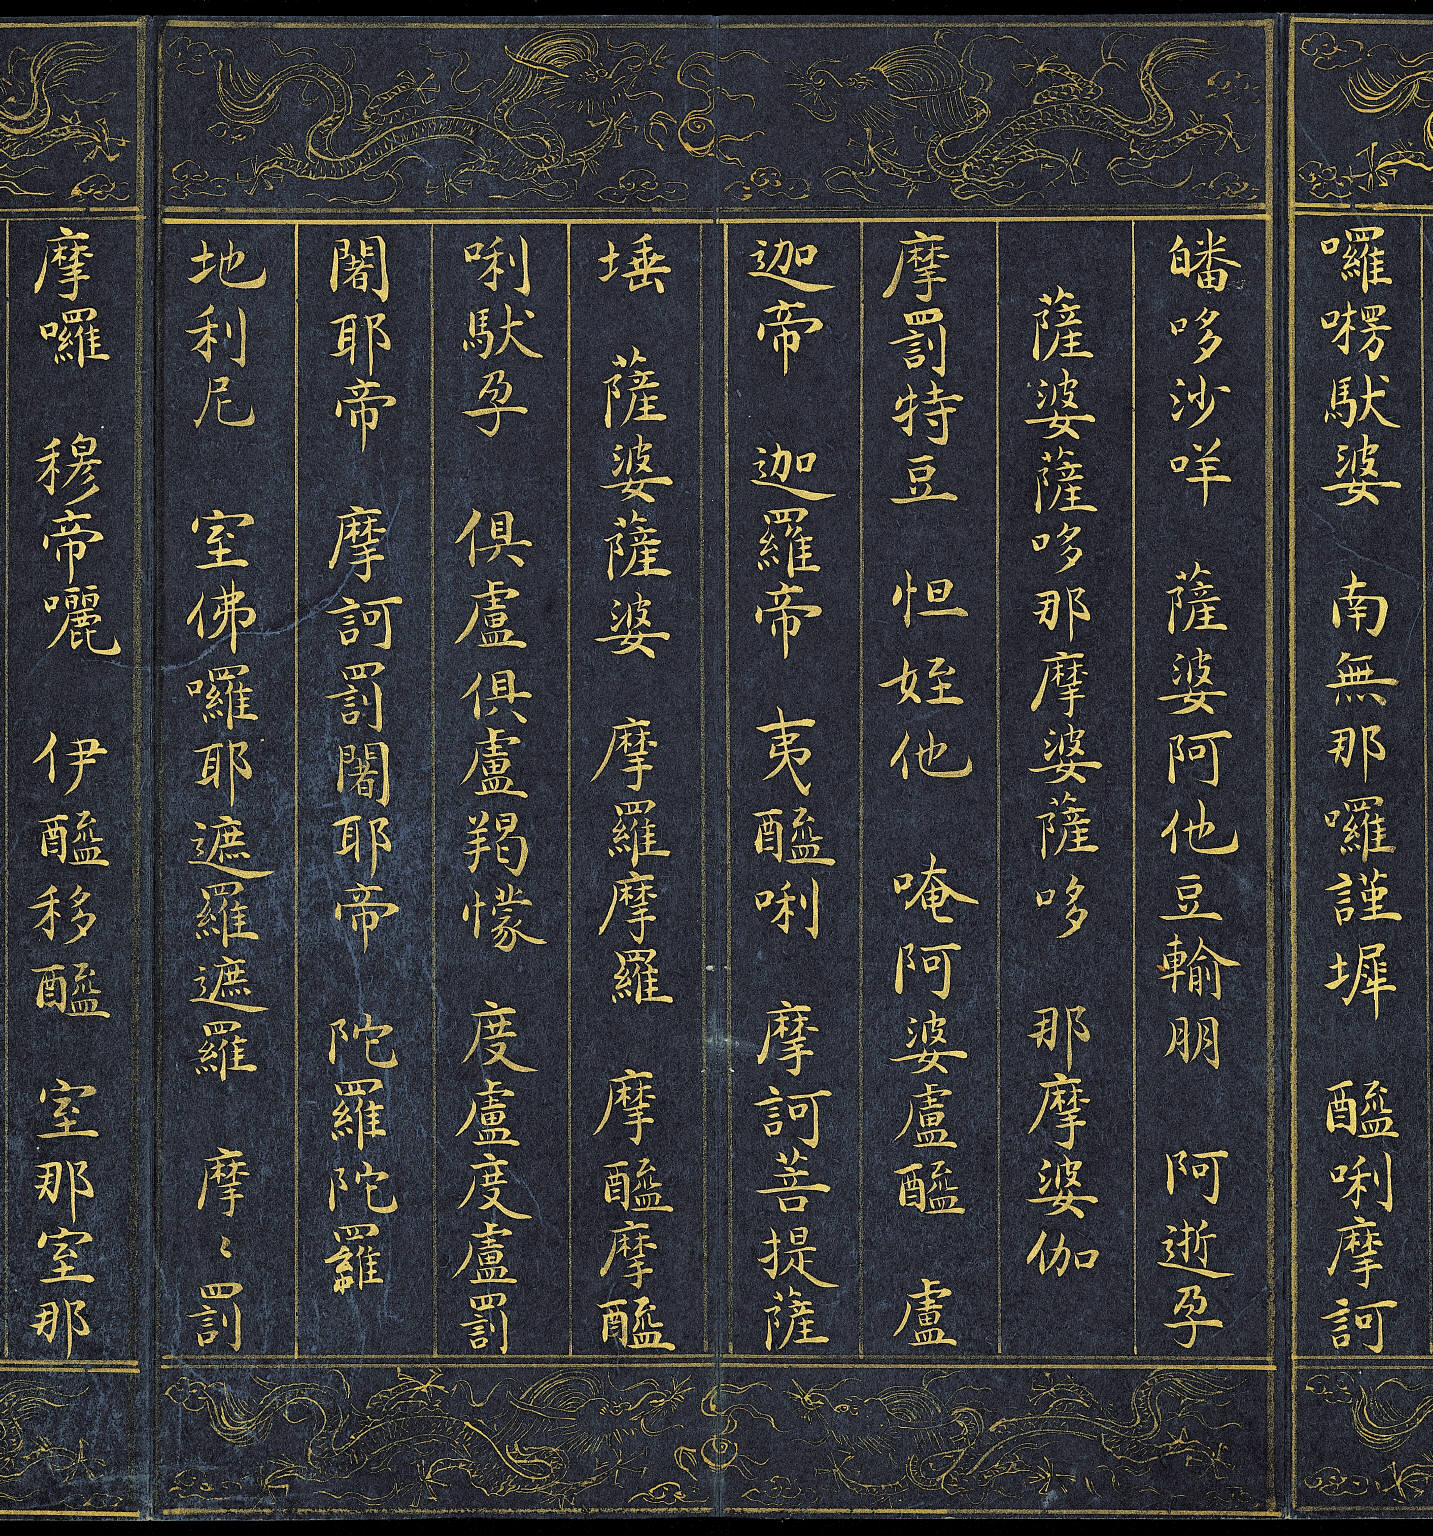 囉㘄馱婆 南無那囉謹墀 醯唎摩訶
皤哆沙咩 薩婆阿他豆輸朋 阿逝孕
薩婆薩哆那摩婆薩哆 那摩婆伽
摩罰特豆 怛姪他 唵阿婆盧醯 盧
迦帝 迦羅帝 夷醯唎 摩訶菩提薩
埵 薩婆薩婆 摩羅摩羅 摩醯摩醯
唎馱孕 俱盧俱盧羯懞 度盧度盧罰
闍耶帝 摩訶罰闍耶帝 陀羅陀羅
地利尼 室佛囉耶遮羅遮羅 摩〻罰
摩囉 穆帝囇 伊醯移醯 室那室那